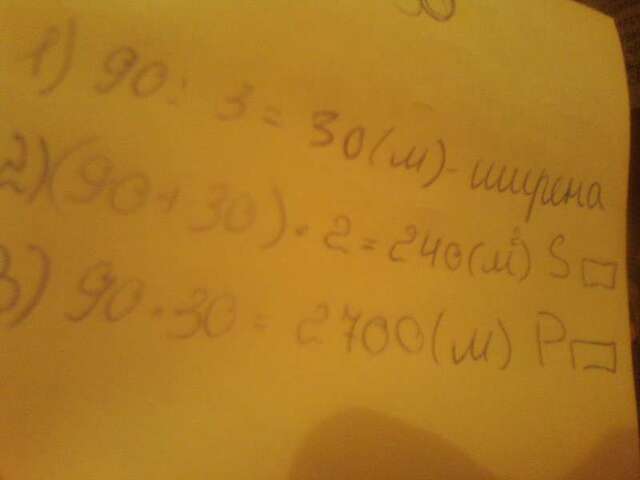 30
1) 90 : 3 = 30 (м) - ширена
2) (90 + 30) · 2 = 240 (м²) S ▭
3) 90 · 30 = 2700 (м) P ▭